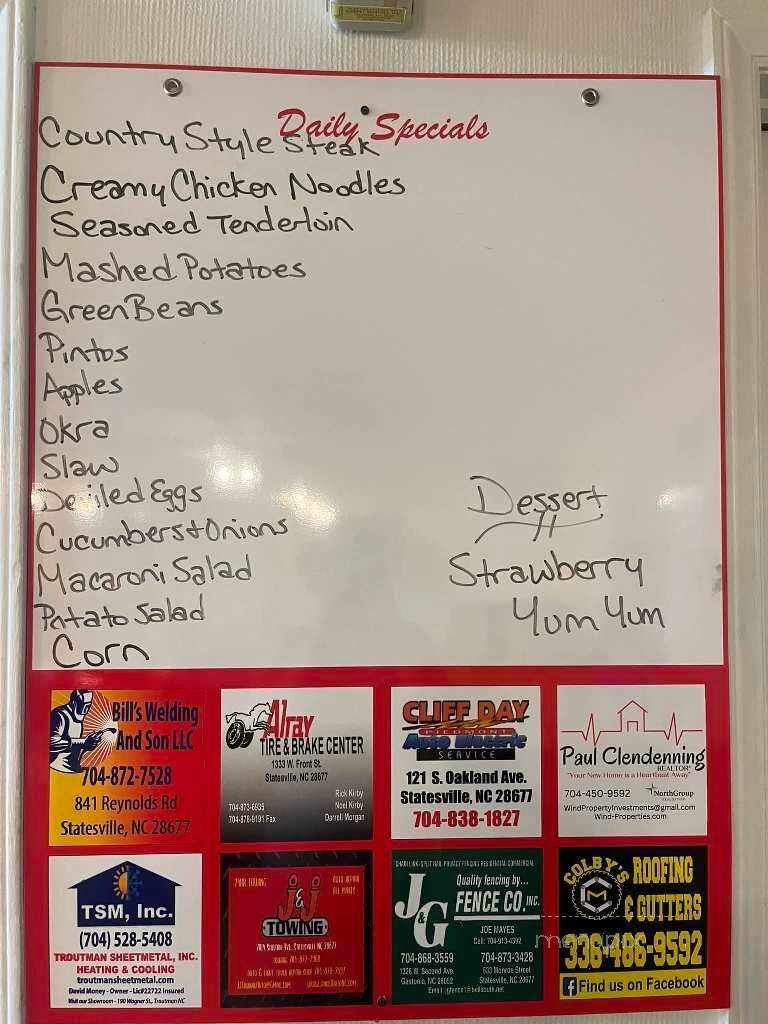 Daily Specials
Country Style Steak
Creamy Chicken Noodles
Seasoned Tenderloin
Mashed Potatoes
Green Beans
Pintos
Apples
Okra
Slaw
Deviled Eggs
Cucumbers + Onions
Macaroni Salad
Potato Salad
Corn
Dessert
Strawberry
Yum Yum
Bill's Welding
And Son LLC
704-872-7528
841 Reynolds Rd
Statesville, NC 28677
Alray
TIRE & BRAKE CENTER
1333 W. Front St.
Statesville, NC 28677
Rick Kirby
704-873-6835 Noel Kirby
704-878-9191 Fax Darrell Morgan
CLIFF DAY
PIEDMONT
Auto Electric
SERVICE
121 S. Oakland Ave.
Statesville, NC 28677
704-838-1827
Paul Clendenning
REALTOR®
"Your New Home is a Heartbeat Away"
704-450-9592 NorthGroup
WindPropertyInvestments@gmail.com
Wind-Properties.com
TSM, Inc.
(704) 528-5408
TROUTMAN SHEETMETAL, INC.
HEATING & COOLING
troutmansheetmetal.com
David Money - Owner - Lic#22722 Insured
Visit our Showroom - 190 Wagner St., Troutman NC
24HR TOWING
AUTO REPAIR
ALL MAKES
J&J
TOWING
CHAIN LINK-SPLIT RAIL-PRIVACY FENCING RESIDENTIAL-COMMERCIAL
Quality fencing by...
J&G
FENCE CO. INC.
JOE MAYES
Cell: 704-913-4392
704-868-3559 704-873-3428
1326 W. Second Ave. 533 Monroe Street
Gastonia, NC 28052 Statesville, NC 28677
Email: jgfence1@bellsouth.net
COLBY'S
ROOFING
& GUTTERS
336-486-9592
Find us on Facebook